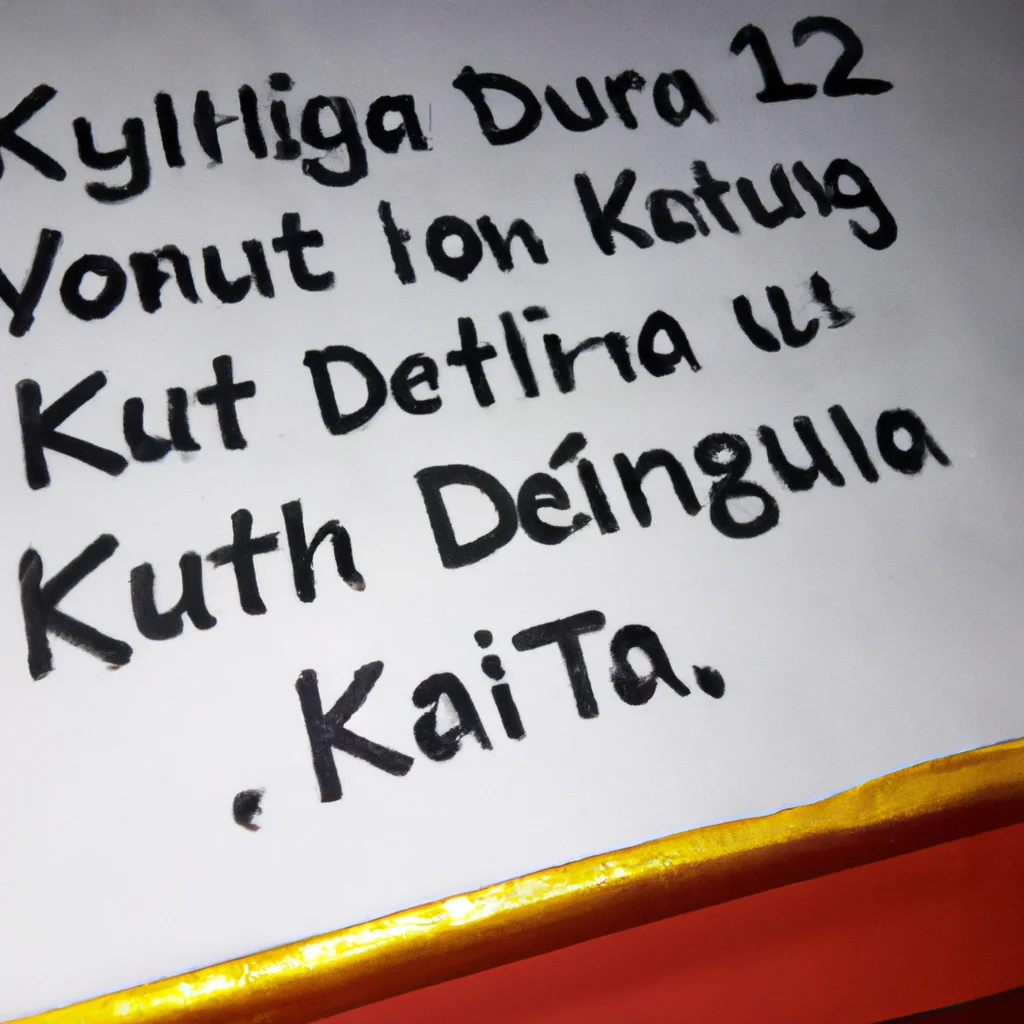 KylHiga Dura 12
Yonut ton Katung
Kut Detlirra
Kuth Deíngula
. KaiTa.